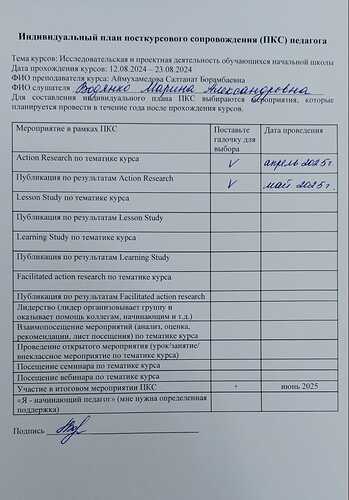 Индивидуальный план посткурсового сопровождения (ПКС) педагога
Тема курсов: Исследовательская и проектная деятельность обучающихся начальной школы
Дата прохождения курсов: 12.08.2024 – 23.08.2024
ФИО преподавателя курса: Аймухамедова Салтанат Борамбаевна
ФИО слушателя Водянко Марина Александровна
Для составления индивидуального плана ПКС выбираются мероприятия, которые
планируется провести в течение года после прохождения курсов.
Мероприятие в рамках ПКС Поставьте галочку для выбора Дата проведения
Action Research по тематике курса V апрель 2025 г.
Публикация по результатам Action Research V май 2025 г.
Lesson Study по тематике курса
Публикация по результатам Lesson Study
Learning Study по тематике курса
Публикация по результатам Learning Study
Facilitated action research по тематике курса
Публикация по результатам Facilitated action research
Лидерство (лидер организовывает группу и
оказывает помощь коллегам, начинающим и т.д.)
Взаимопосещение мероприятий (анализ, оценка,
рекомендации, лист посещения) по тематике курса
Проведение открытого мероприятия (урок/занятие/
внеклассное мероприятие по тематике курса)
Посещение семинара по тематике курса
Посещение вебинара по тематике курса
Участие в итоговом мероприятии ПКС + июнь 2025
«Я - начинающий педагог» (мне нужна определенная
поддержка)
Подпись